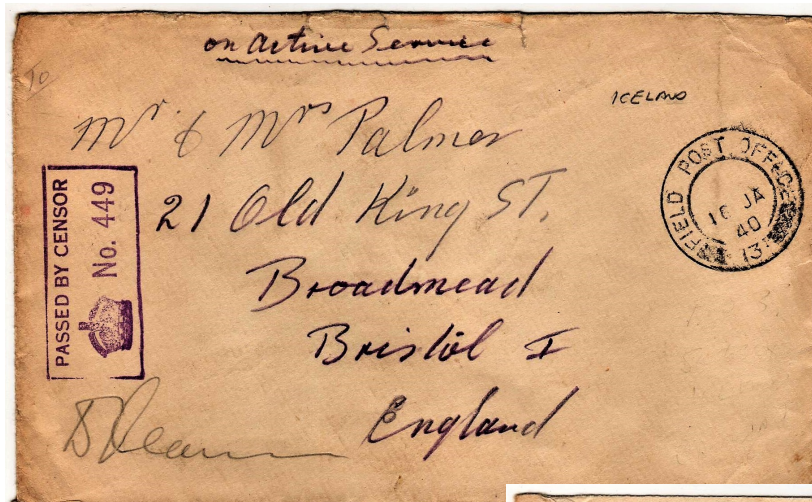 on Active Service
To
ICELAND
Mr & Mrs Palmer
21 Old King ST.
Broadmead
Bristol I
England
PASSED BY CENSOR
No. 449
FIELD POST OFFICE
16 JA
40